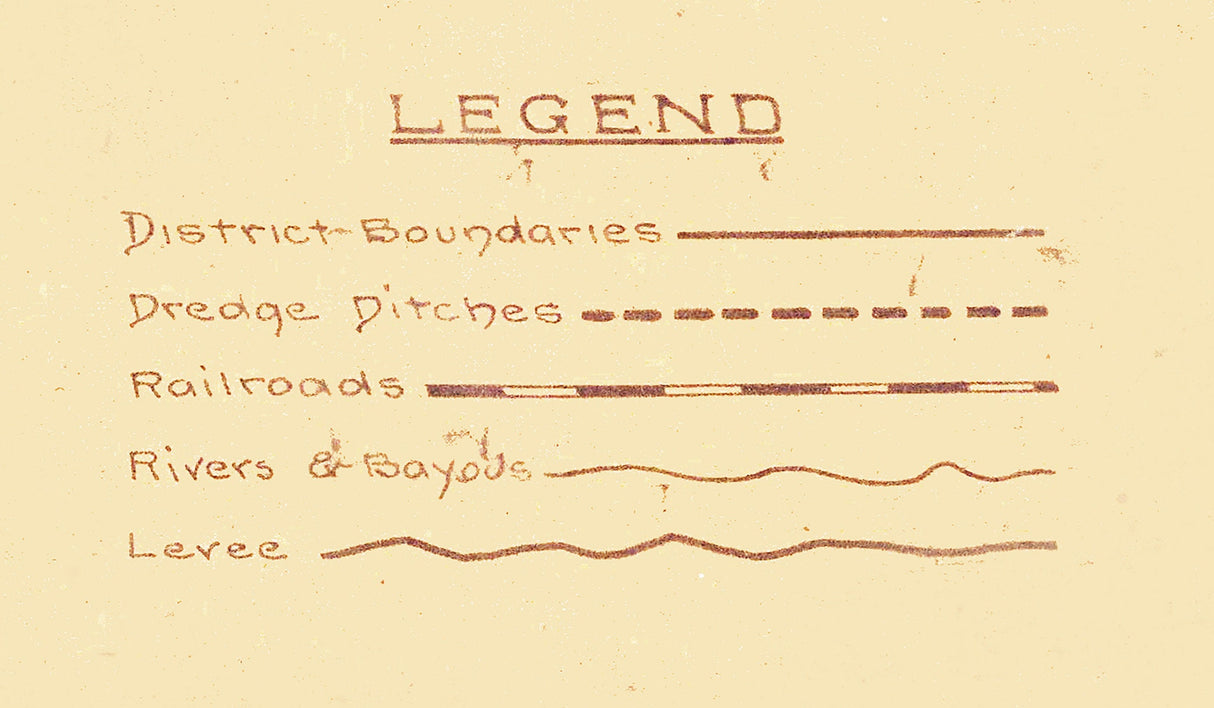 LEGEND
District Boundaries
Dredge Ditches
Railroads
Rivers & Bayous
Levee